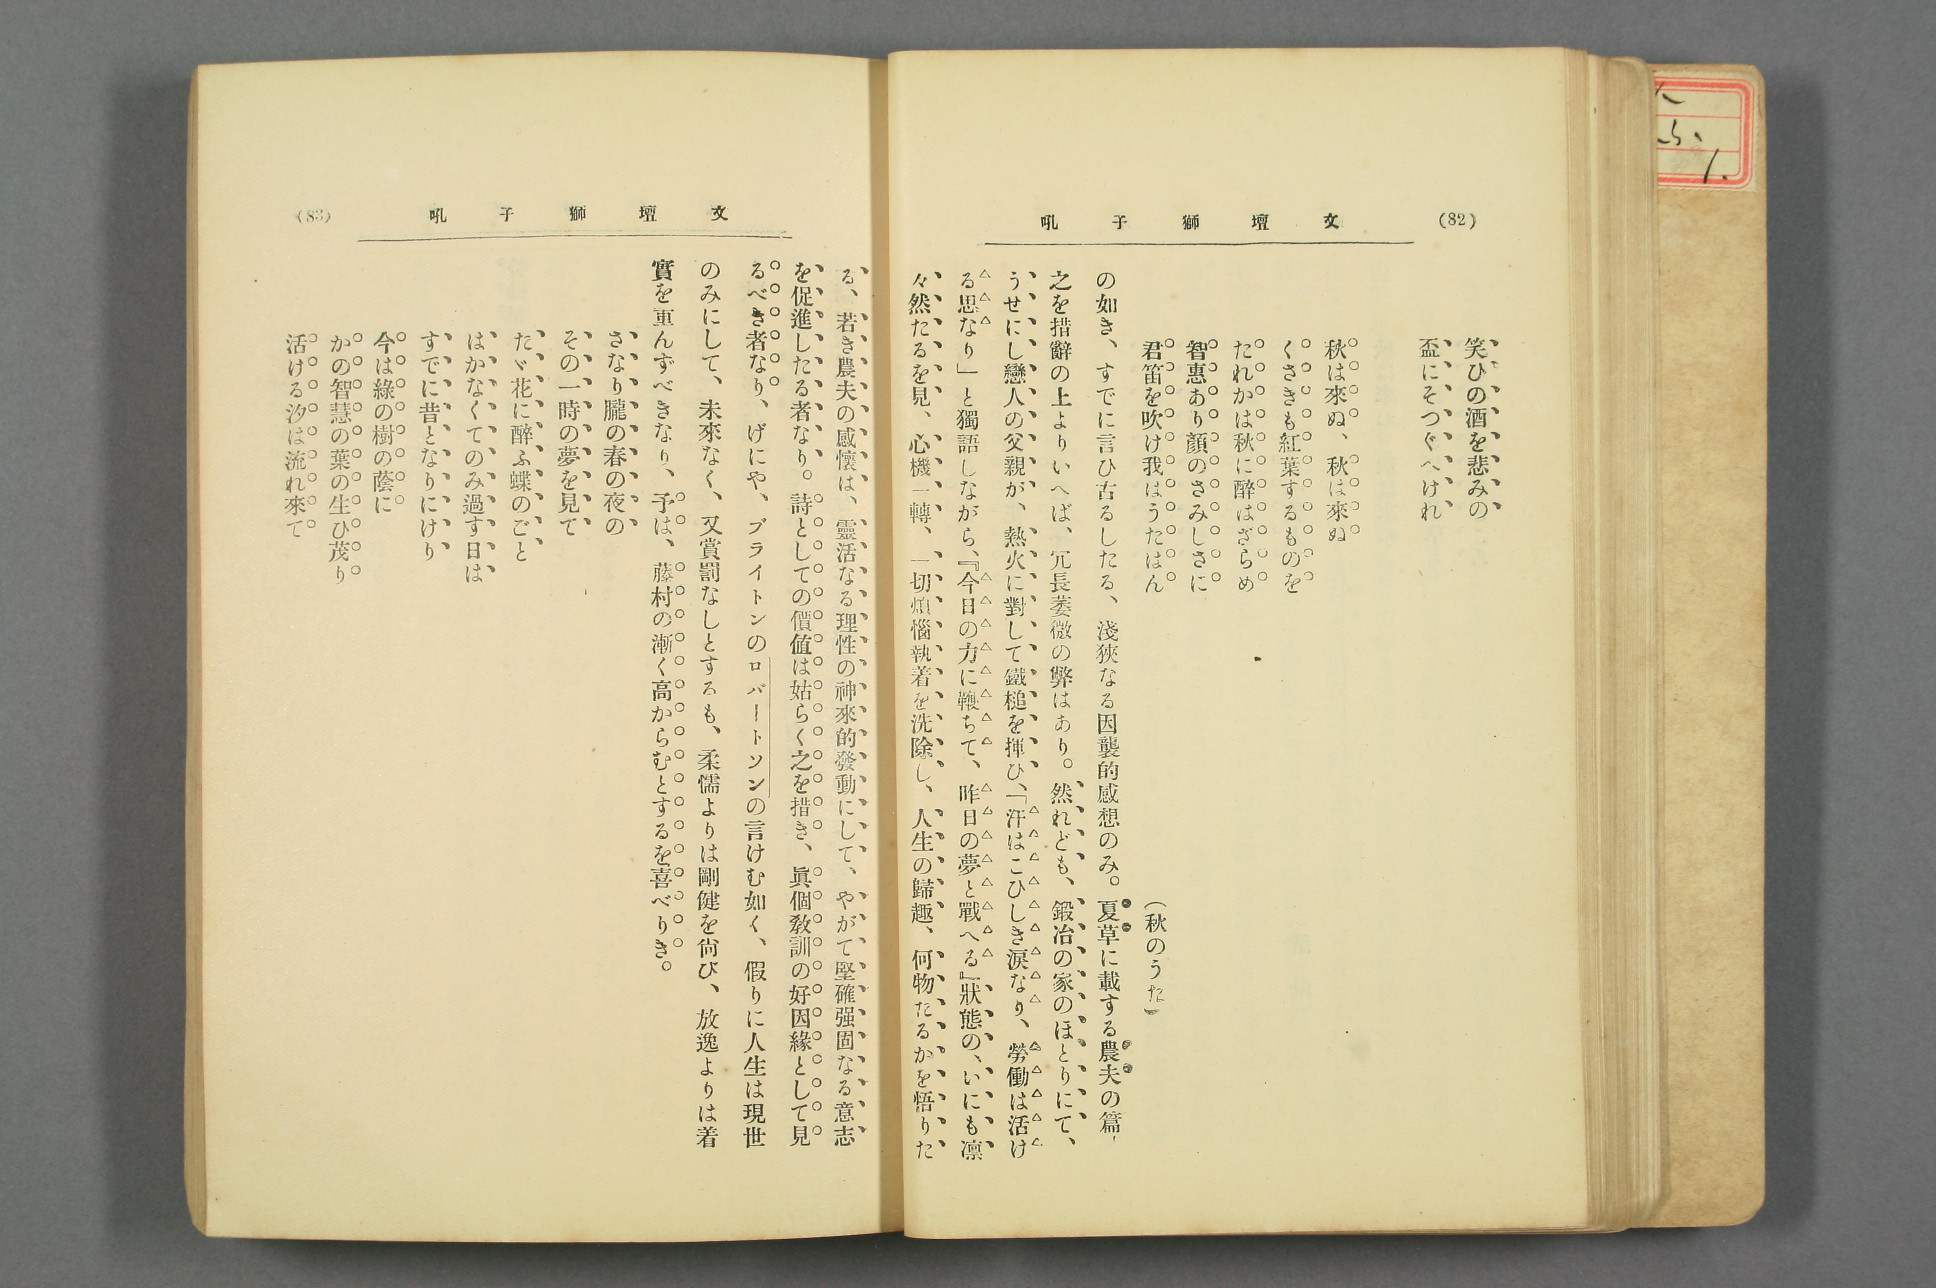 (82)
文壇獅子吼
笑ひの酒を悲みの
盃にそつぐべけれ
秋は來ぬ、秋は來ぬ
くさきも紅葉するものを
たれかは秋に醉はざらめ
智惠あり顏のさみしさに
君笛を吹け我はうたはん
(秋のうた)
の如き、すでに言ひ古るしたる、淺狹なる因襲的感想のみ。夏草に載する農夫の篇、
之を措辭の上よりいへば、冗長萎微の弊はあり。然れども、鍛冶の家のほとりにて、
うせにし戀人の父親が、熱火に對して鐵槌を揮ひ、「汗はこひしき涙なり、勞働は活け
る思なり」と獨語しながら、『今日の力に鞭ちて、昨日の夢と戰へる』狀態の、いにも凛
々然たるを見、心機一轉、一切煩惱執着を洗除し、人生の歸趣、何物たるかを悟りた
(83)
文壇獅子吼
る、若き農夫の感懷は、靈活なる理性の神來的發動にして、やがて堅確强固なる意志
を促進したる者なり。詩としての價値は姑らく之を措き、眞個敎訓の好因緣として見
るべき者なり、げにや、ブライトンのロバートソンの言けむ如く、假りに人生は現世
のみにして、未來なく、又賞罰なしとするも、柔懦よりは剛健を尙び、放逸よりは着
實を重んずべきなり、予は、藤村の漸く高からむとするを喜べりき。
さなり朧の春の夜の
その一時の夢を見て
たゞ花に醉ふ蝶のごと
はかなくてのみ過す日は
すでに昔となりにけり
今は綠の樹の蔭に
かの智慧の葉の生ひ茂り
活ける汐は流れ來て